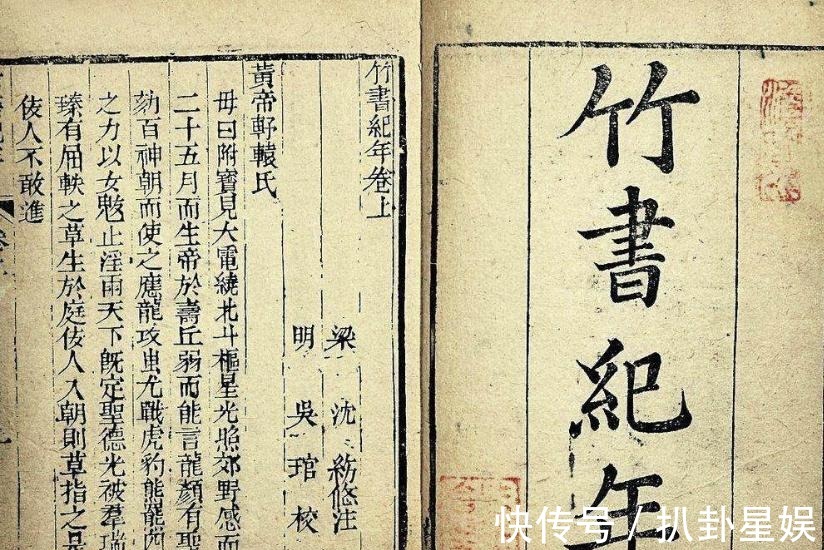 竹書紀年
竹書紀年卷上
梁 沈約附注
明 吳琯校
黃帝軒轅氏
母曰附寶見大電繞北斗樞星光照郊野感而
二十五月而生帝於壽丘弱而能言龍顏有聖
劾百神朝而使之應龍攻蚩尤戰虎豹熊羆四
之力以女魃止淫雨天下既定聖德光被羣瑞
臻有屈軼之草生於庭佞人入朝則草指之是
佞人不敢進
快传号 / 扒卦星娱